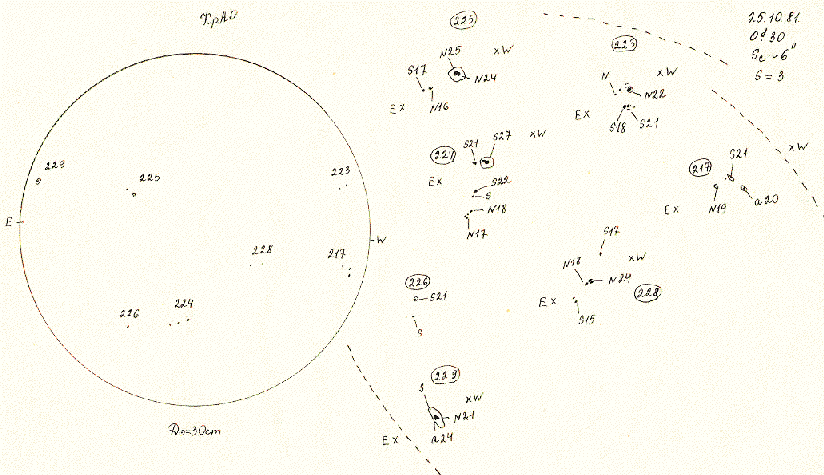 КрАО
25.10.81.
S = 3
223
225
223
E
W
228
217
226
224
D₀=30cm
225
N25
xW
S17
N24
Ex
N16
223
N
xW
N22
Ex
S18
S21
S21
S27
xW
Ex
S22
S
N18
N17
xW
217
S21
Ex
N19
a20
S17
N18
xW
N24
Ex
228
S15
226
S21
S
xW
N21
Ex
a24